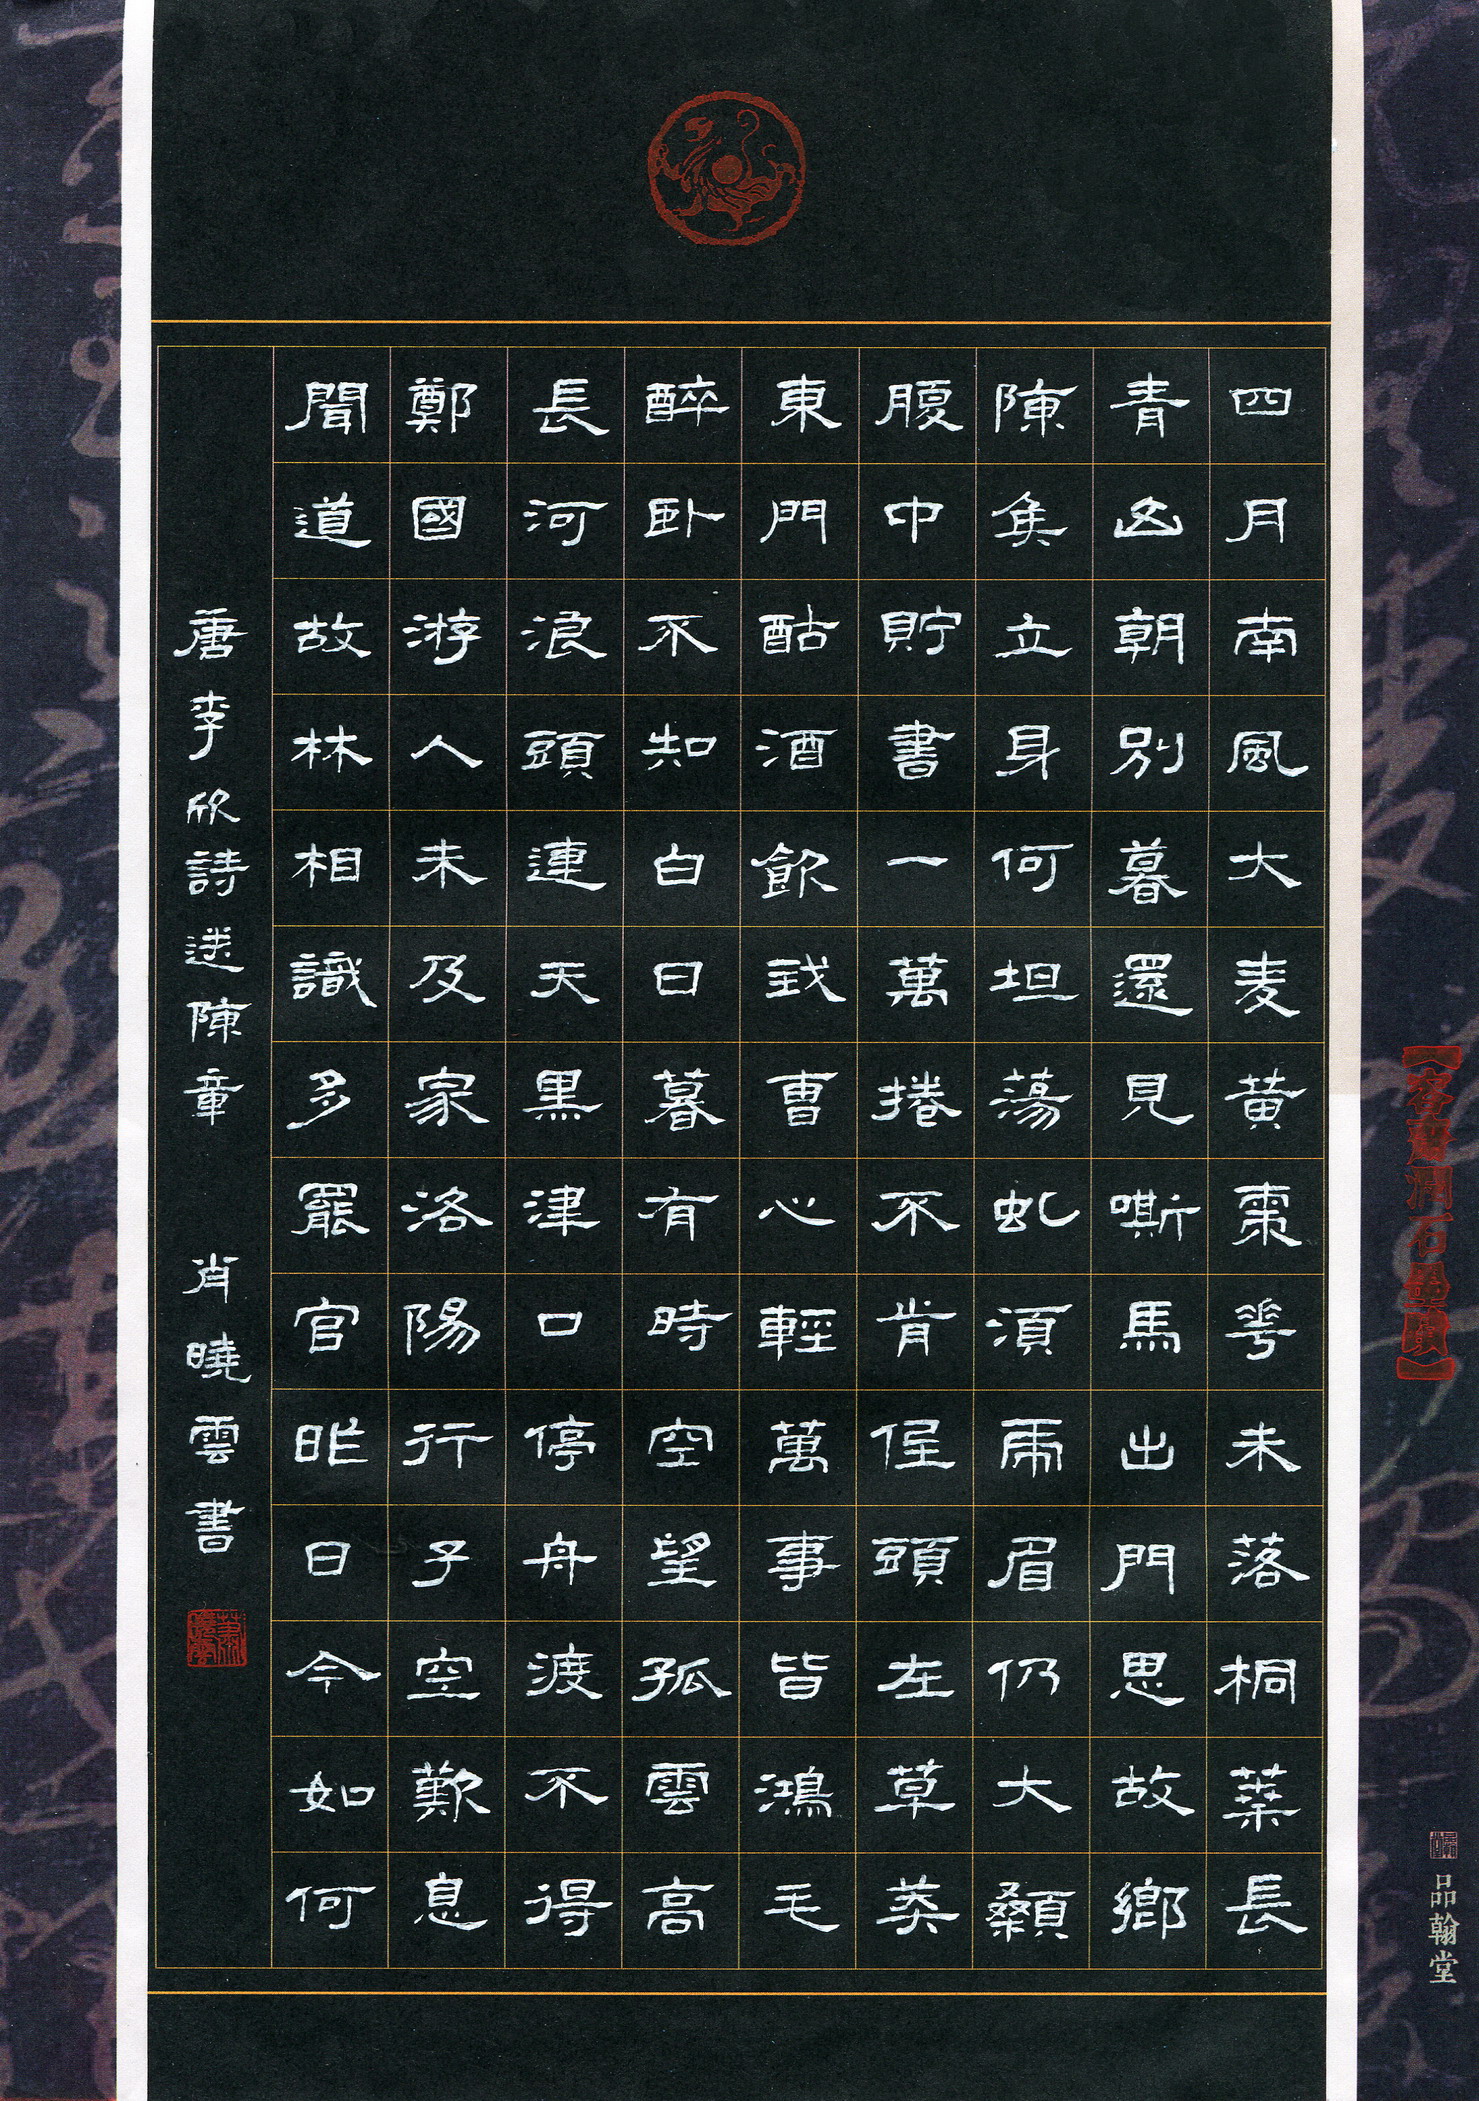 四月南風大麦黄棗花未落桐葉長
青山朝別暮還見嘶馬出門思故鄉
陳侯立身何坦蕩虬須虎眉仍大顙
腹中貯書一萬捲不肯低頭在草莽
東門酤酒飲我曹心輕萬事皆鴻毛
醉卧不知白日暮有時空望孤雲高
長河浪頭連天黑津口停舟渡不得
鄭國游人未及家洛陽行子空歎息
聞道故林相識多罷官昨日今如何
唐李欣詩送陳章 肖曉雲書
品翰堂